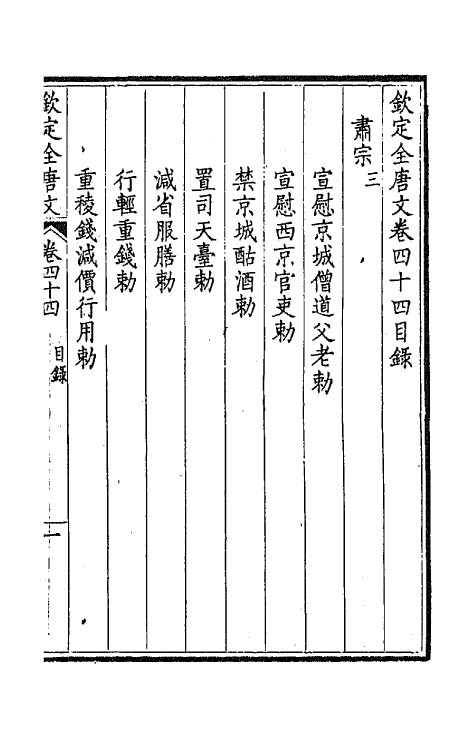 欽定全唐文卷四十四目錄
肅宗三
宣慰京城僧道父老勅
宣慰西京官吏勅
禁京城酤酒勅
置司天臺勅
減省服膳勅
行輕重錢勅
重稜錢減價行用勅
欽定全唐文
卷四十四
目錄
一